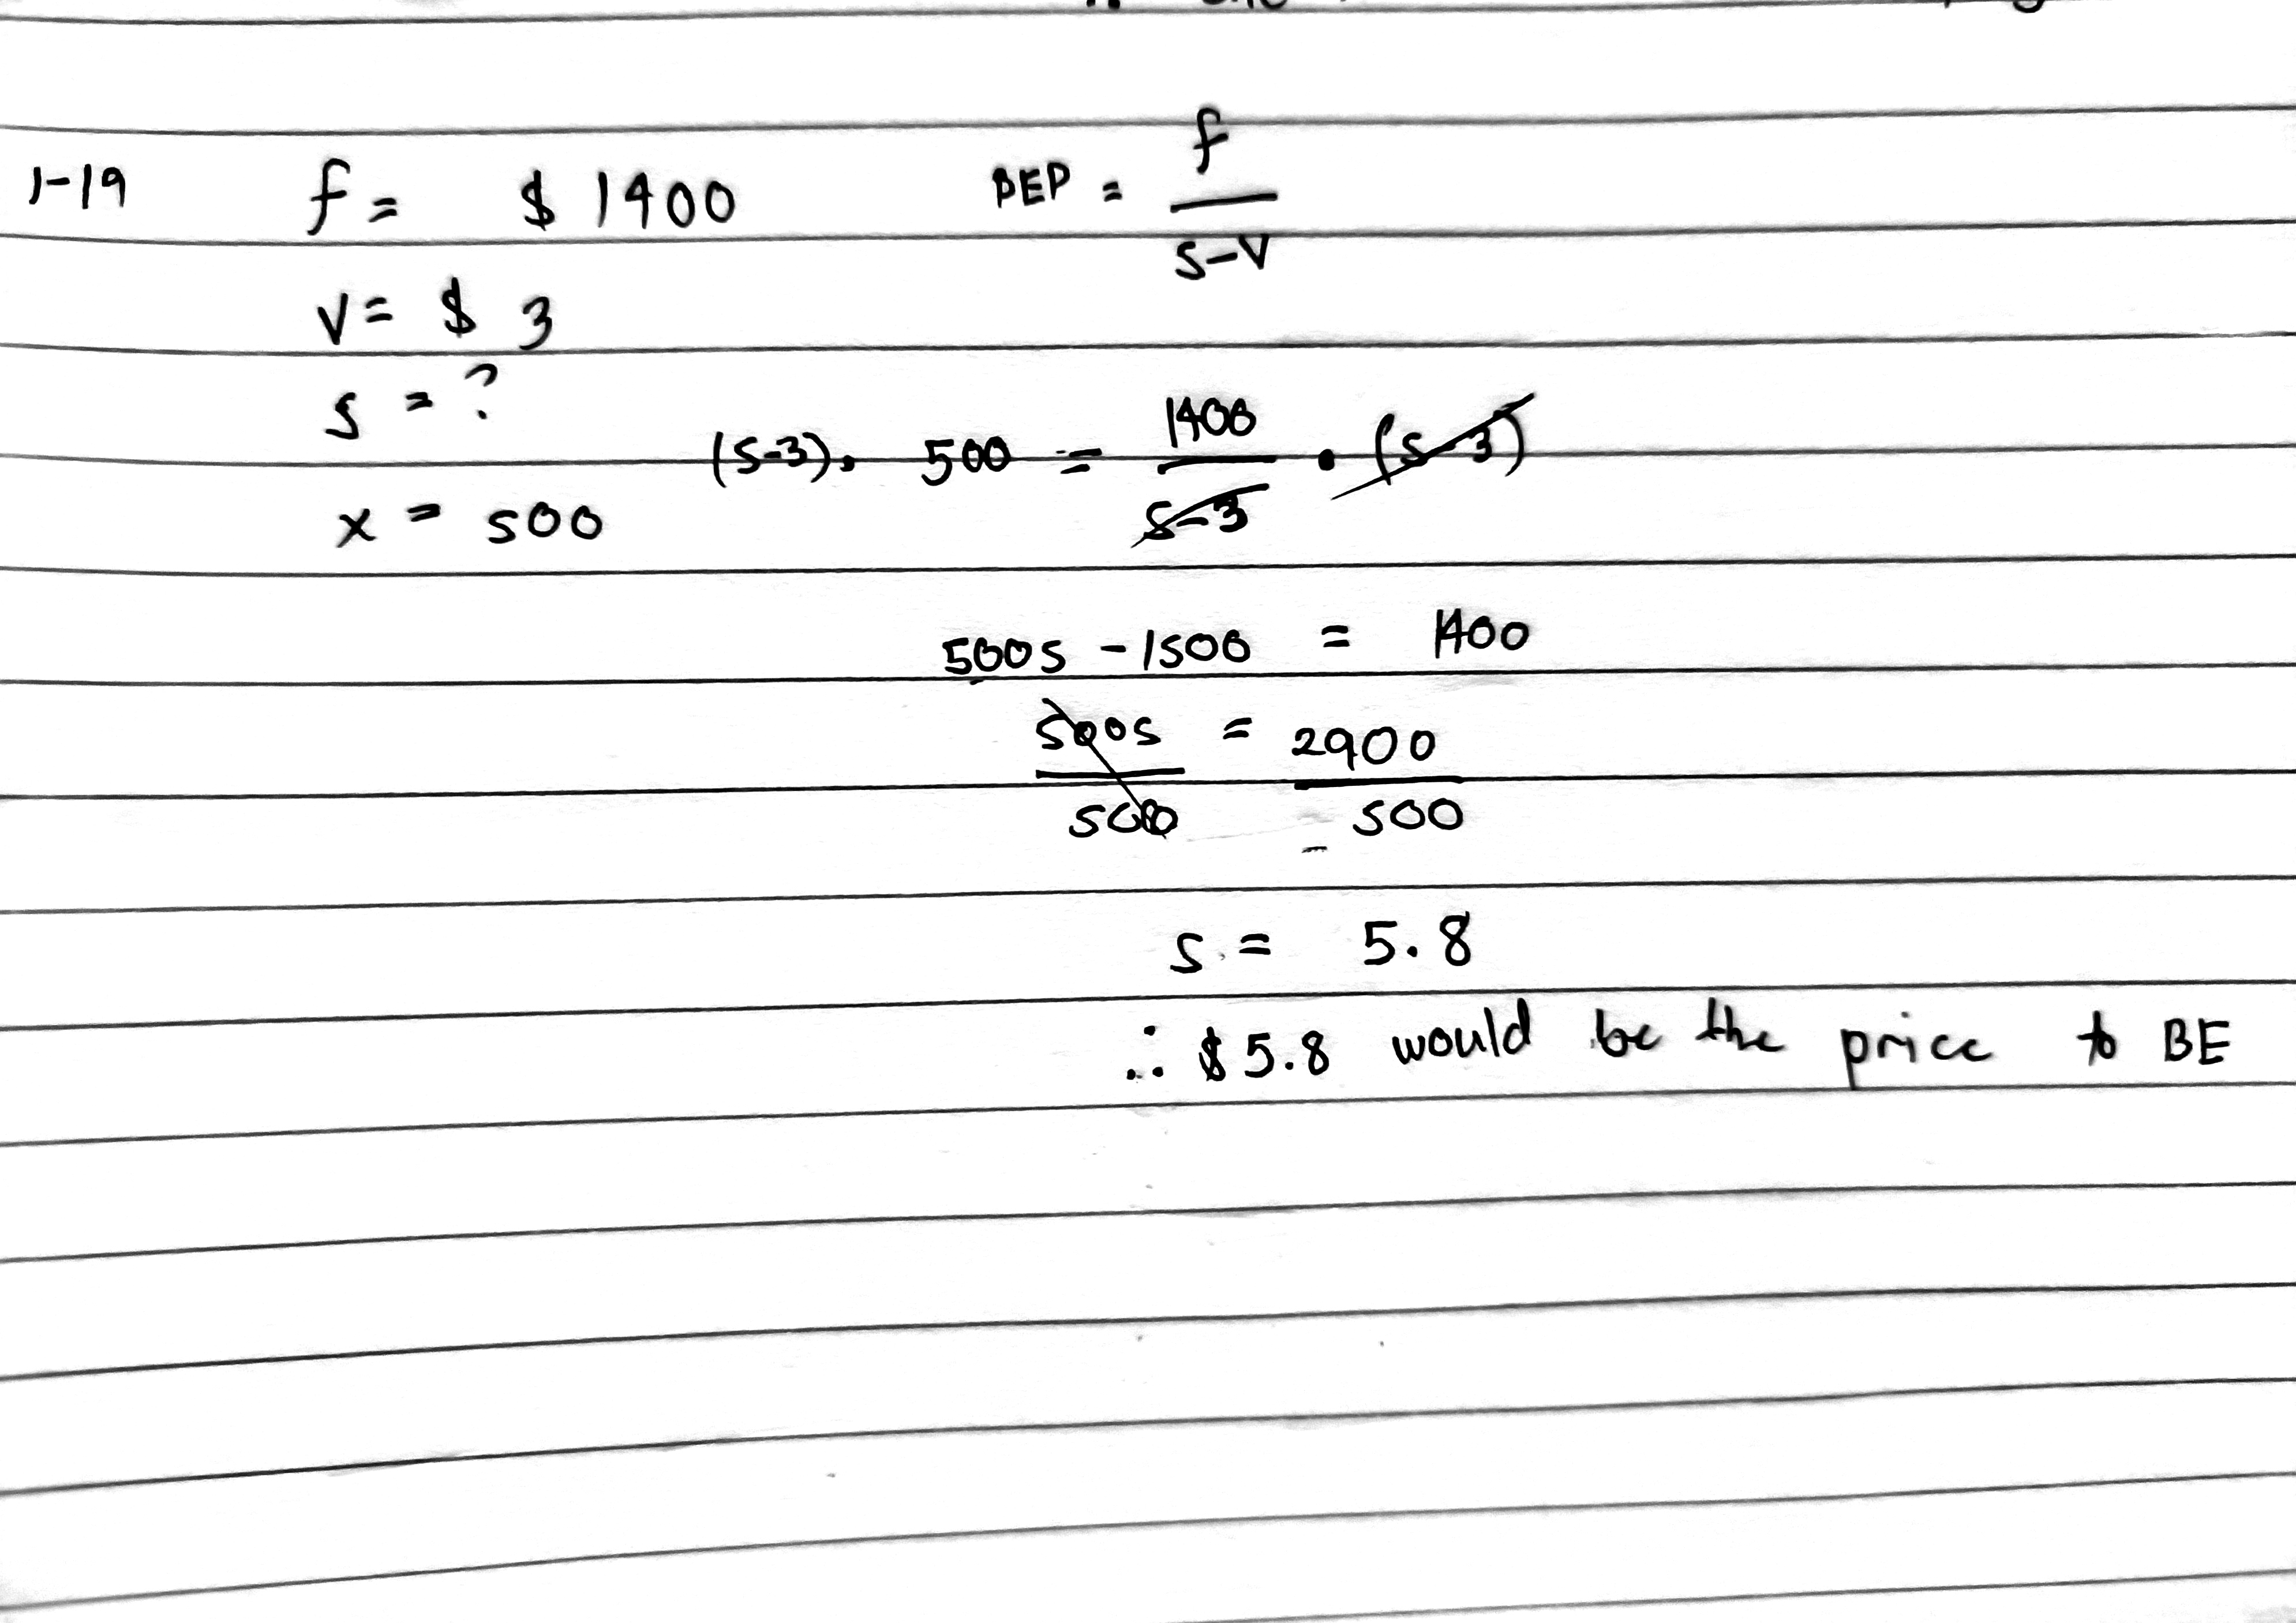 1-19 f = $ 1400 BEP = f / s-v
v = $ 3
s = ?
(s-3). 500 = 1400 / s-3 . (s-3)
x = 500
500s - 1500 = 1400
500s / 500 = 2900 / 500
s = 5.8
∴ $5.8 would be the price to BE